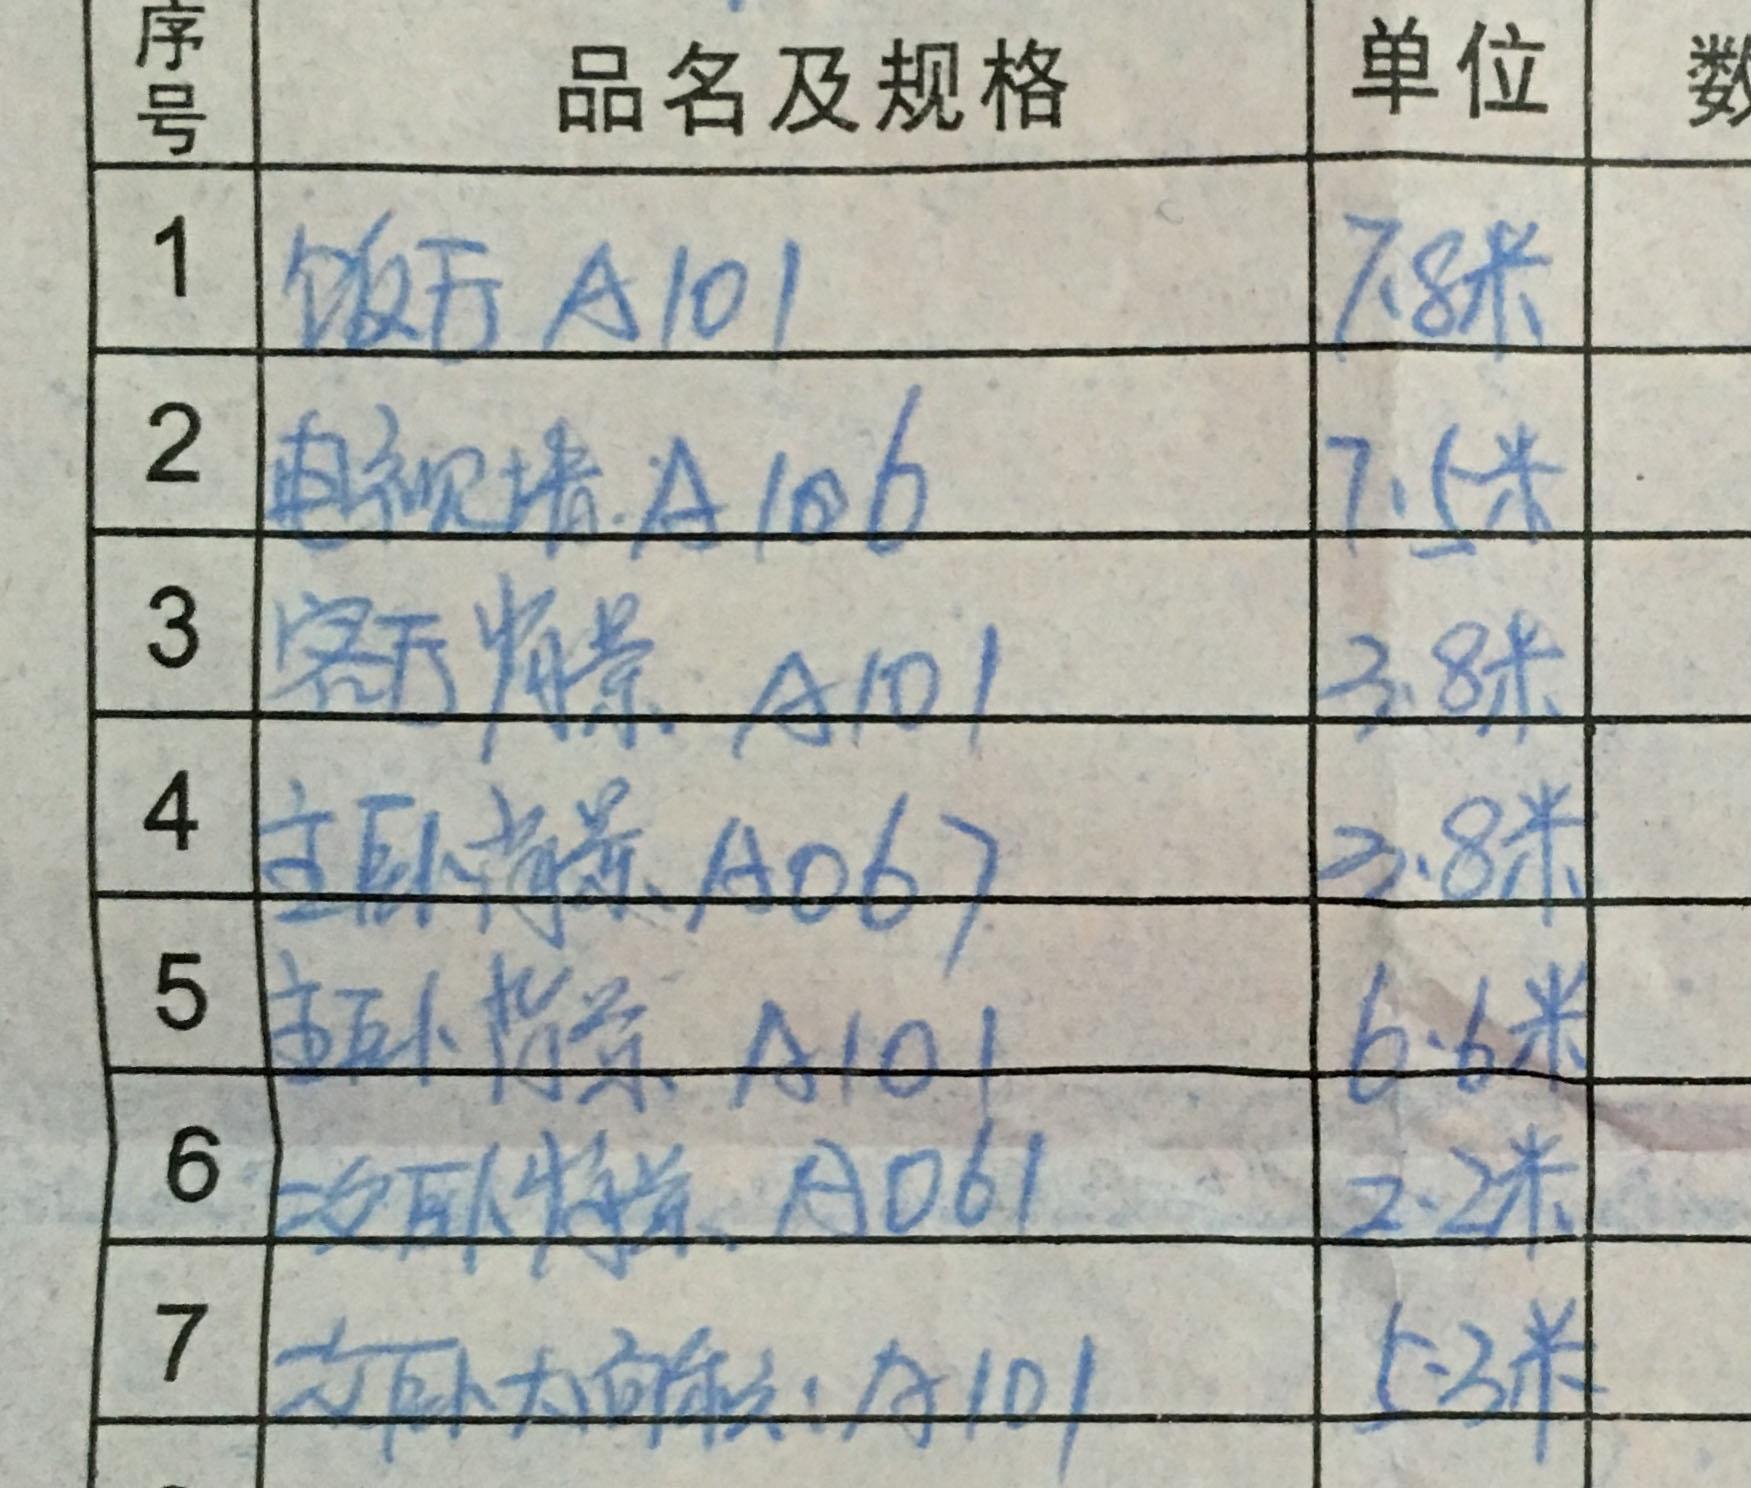 序号 品名及规格 单位 数
1 饭厅 A101 7.8米
2 电视墙 A106 7.5米
3 客厅背景 A101 3.8米
4 主卧背景 A067 3.8米
5 主卧背景 A101 6.6米
6 次卧背景 A061 2.2米
7 次卧大面积 A101 5.3米